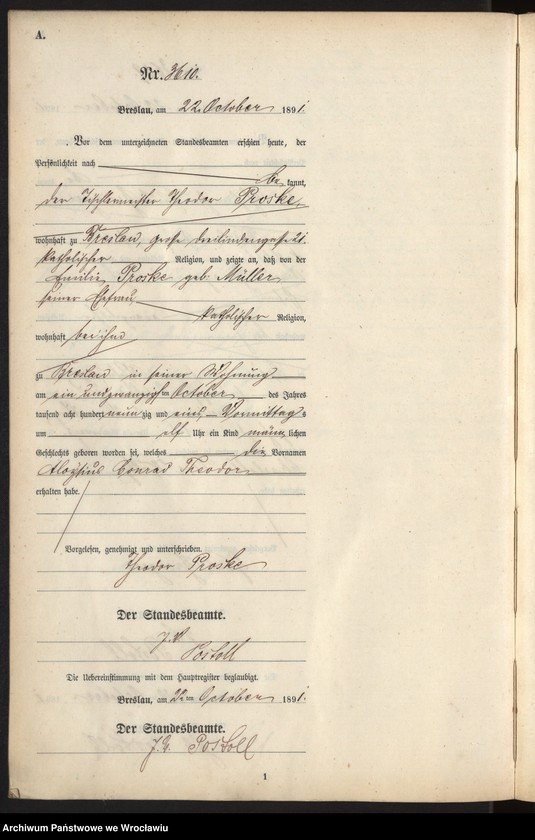 A.
Nr. 3610.
Breslau, am 22. October 1891.
Vor dem unterzeichneten Standesbeamten erschien heute, der
Persönlichkeit nach
be kannt,
der Tischlermeister Theodor Proske,
wohnhaft zu Breslau, große Dreilindengasse 21
katholischer Religion, und zeigte an, daß von der
Emilie Proske geb. Müller
seiner Ehefrau
katholischer Religion,
wohnhaft bei ihm
zu Breslau in seiner Wohnung
am ein und zwanzigsten October des Jahres
tausend acht hundert neun zig und eins Vormittags
um elf Uhr ein Kind männ lichen
Geschlechts geboren worden sei, welches die Vornamen
Aloysius Conrad Theodor
erhalten habe.
Vorgelesen, genehmigt und unterschrieben.
Theodor Proske
Der Standesbeamte.
J. V.
Die Uebereinstimmung mit dem Hauptregister beglaubigt.
Breslau, am 22ten October 1891.
Der Standesbeamte.
J. V.
1
Archiwum Państwowe we Wrocławiu